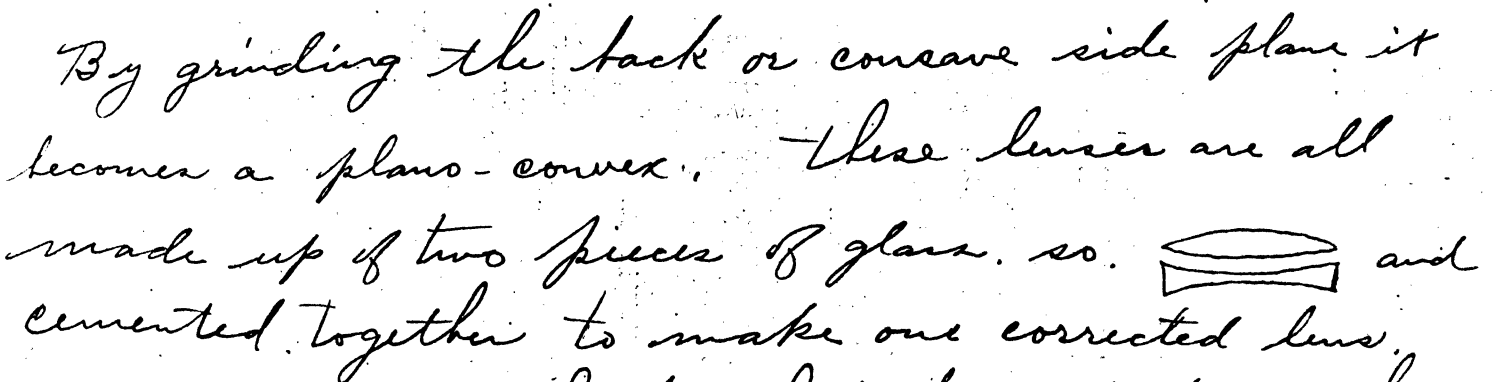 By grinding the back or concave side plane it
becomes a plano-convex. These lenses are all
made up of two pieces of glass. so. and
cemented together to make one corrected lens.